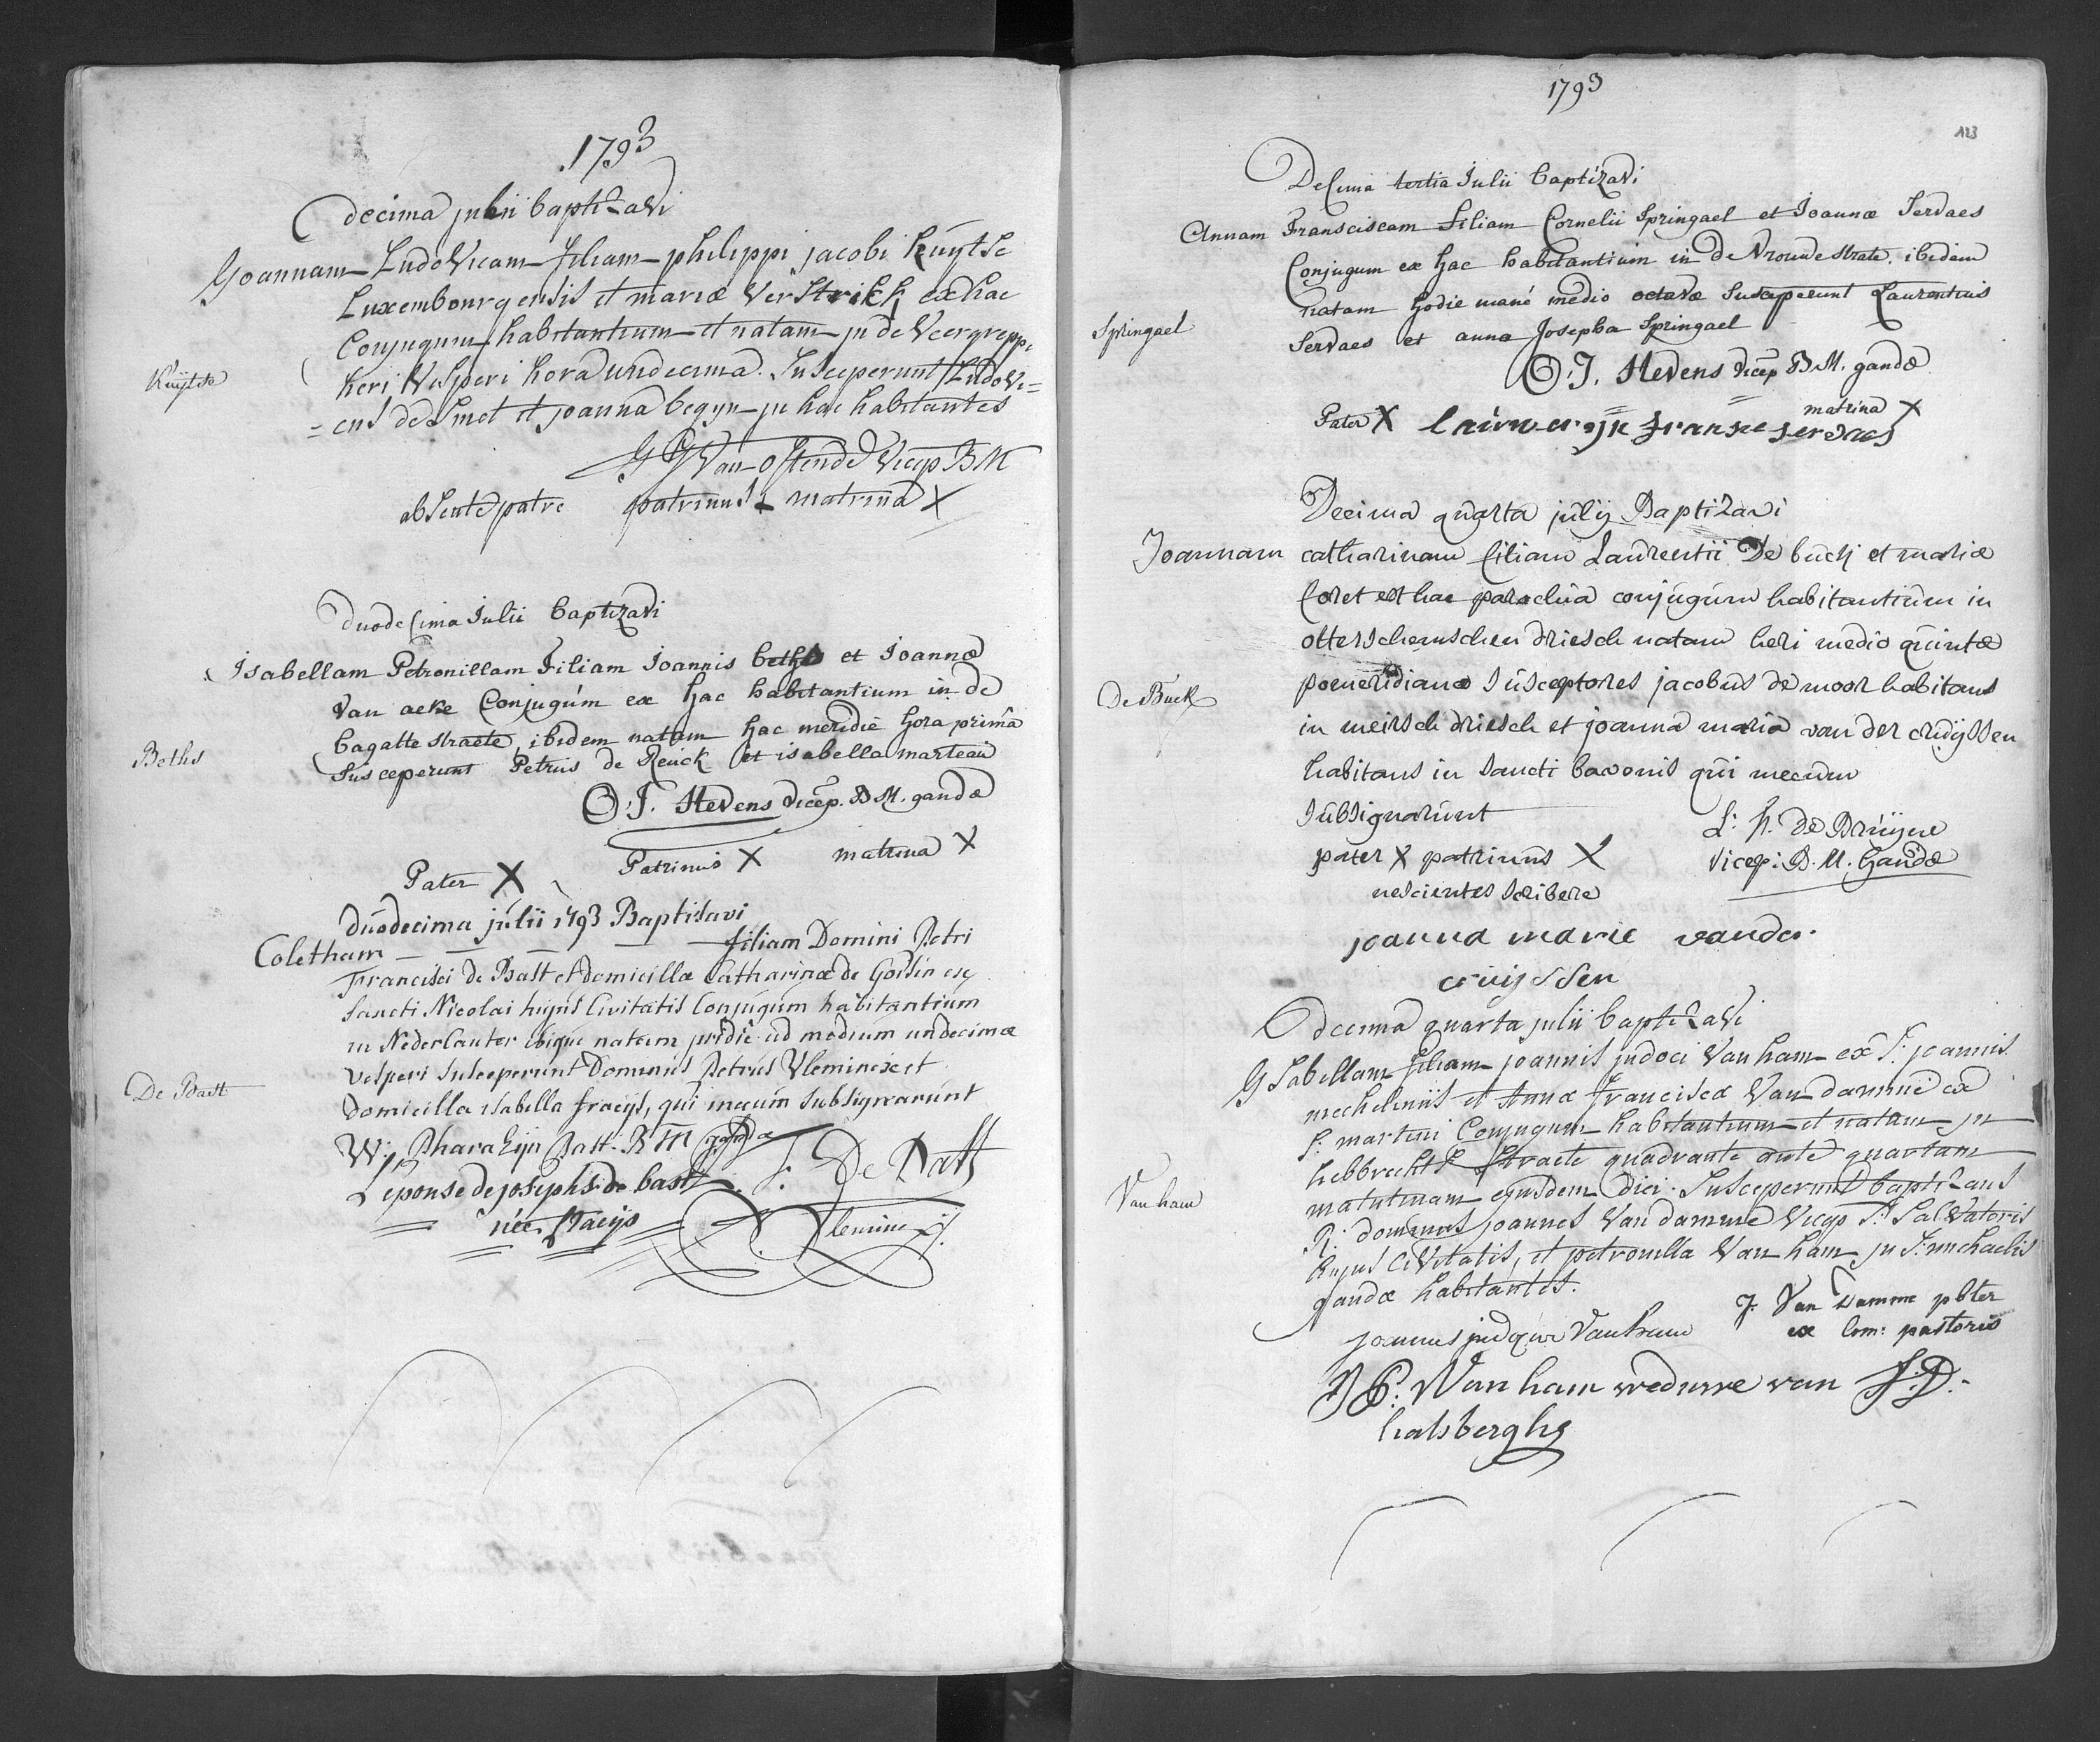 1793
decima julii baptizavi
Joannam Ludovicam filiam philippi jacobi Kuÿtse
Luxembourgensis et mariæ Verstrikh ex hac
Conjugum habitantium et natam in de Veergrepp.
Kuÿtse
heri Vesperi hora undecima. Susceperunt Ludovi=
=cus de Smet et joanna begyn in hac habitantes
Van Ostende Vicep B M
absente patre patrinus x matrina X
Duodecima Julii baptizavi
Isabellam Petronillam Filiam Joannis beths et Joannæ
Van aeke Conjugúm ex hac habitantium in de
bagatte straete, ibidem natam hac meridie hora primâ
Beths
Susceperunt Petrus de Reuck et isabella marteau
O. J. Stevens vicep. B M. gandæ
Pater X Patrinus X matrina X
duodecima julii 1793 Baptisavi
Coletham filiam Domini Petri
Francisci de Bast et domicillæ Catharinæ de Goesin ex
Sancti Nicolai hujus Civitatis Conjugum habitantium
in Nederscauter ibique natam pridie ad medium undecimæ
vesperi susceperunt Dominus Petrus Vleminckx et
De Bast
domicilla isabella fraeijs, qui mecum subsignarunt
W. Pharazijn Past. B M gandæ
L'eponse de joseph s: de bast F. De Bast
née fraeijs P. Vleminckx
1793
123
Decima tertia Julii baptizavi
Annam Fransciscam Filiam Cornelii Springael et Joannæ Servaes
Conjugum ex hac habitantium in de Vrouwestrate. ibidem
natam hodie mané medio octavæ Susceperunt Laurentius
Springael
Servaes et anna Josepha Springael
O. J. Stevens vicep B M. gandæ
Pater X lauwerijn franse servaes matrina X
Decima quarta julij Baptizavi
Joannam catharinam filiam Laurentii De buck et mariæ
Coret ex hac parochia conjugúm habitantiúm in
otterschemschen driesch natam heri medio quintæ
De Buck
pomeridianæ Susceptores jacobús de moor habitans
in meirsch driesch et joanna maria van der crúÿssen
habitans in sancti bavonis qúi mecúm
Súbsignarúnt
L: F. De Brúijne
pater X patrinús X vicep: B. M. Gandæ
nescientes scribere
joanna marie vander
cruijssen
decima quarta julii baptizavi
Isabellam filiam joannis judoci Van ham ex S: joannis
mechliniis et Annæ Franciscæ Van damme ex
S: martini Conjugum habitantium et natam in
hebbrechts Straete quadrante ante quartam
Van ham
matutinam ejusdem diei. Susceperunt baptizans
R: dominus joannes Van damme Vicep S: Salvatoris
hujus civitatis, et petronella Van ham in S: michaelis
gandæ habitantes.
J. Van damme pbter
ex Com: pastoris
joannes judocus Van ham
J P: Van ham weduwe van J: D:
halsberghe